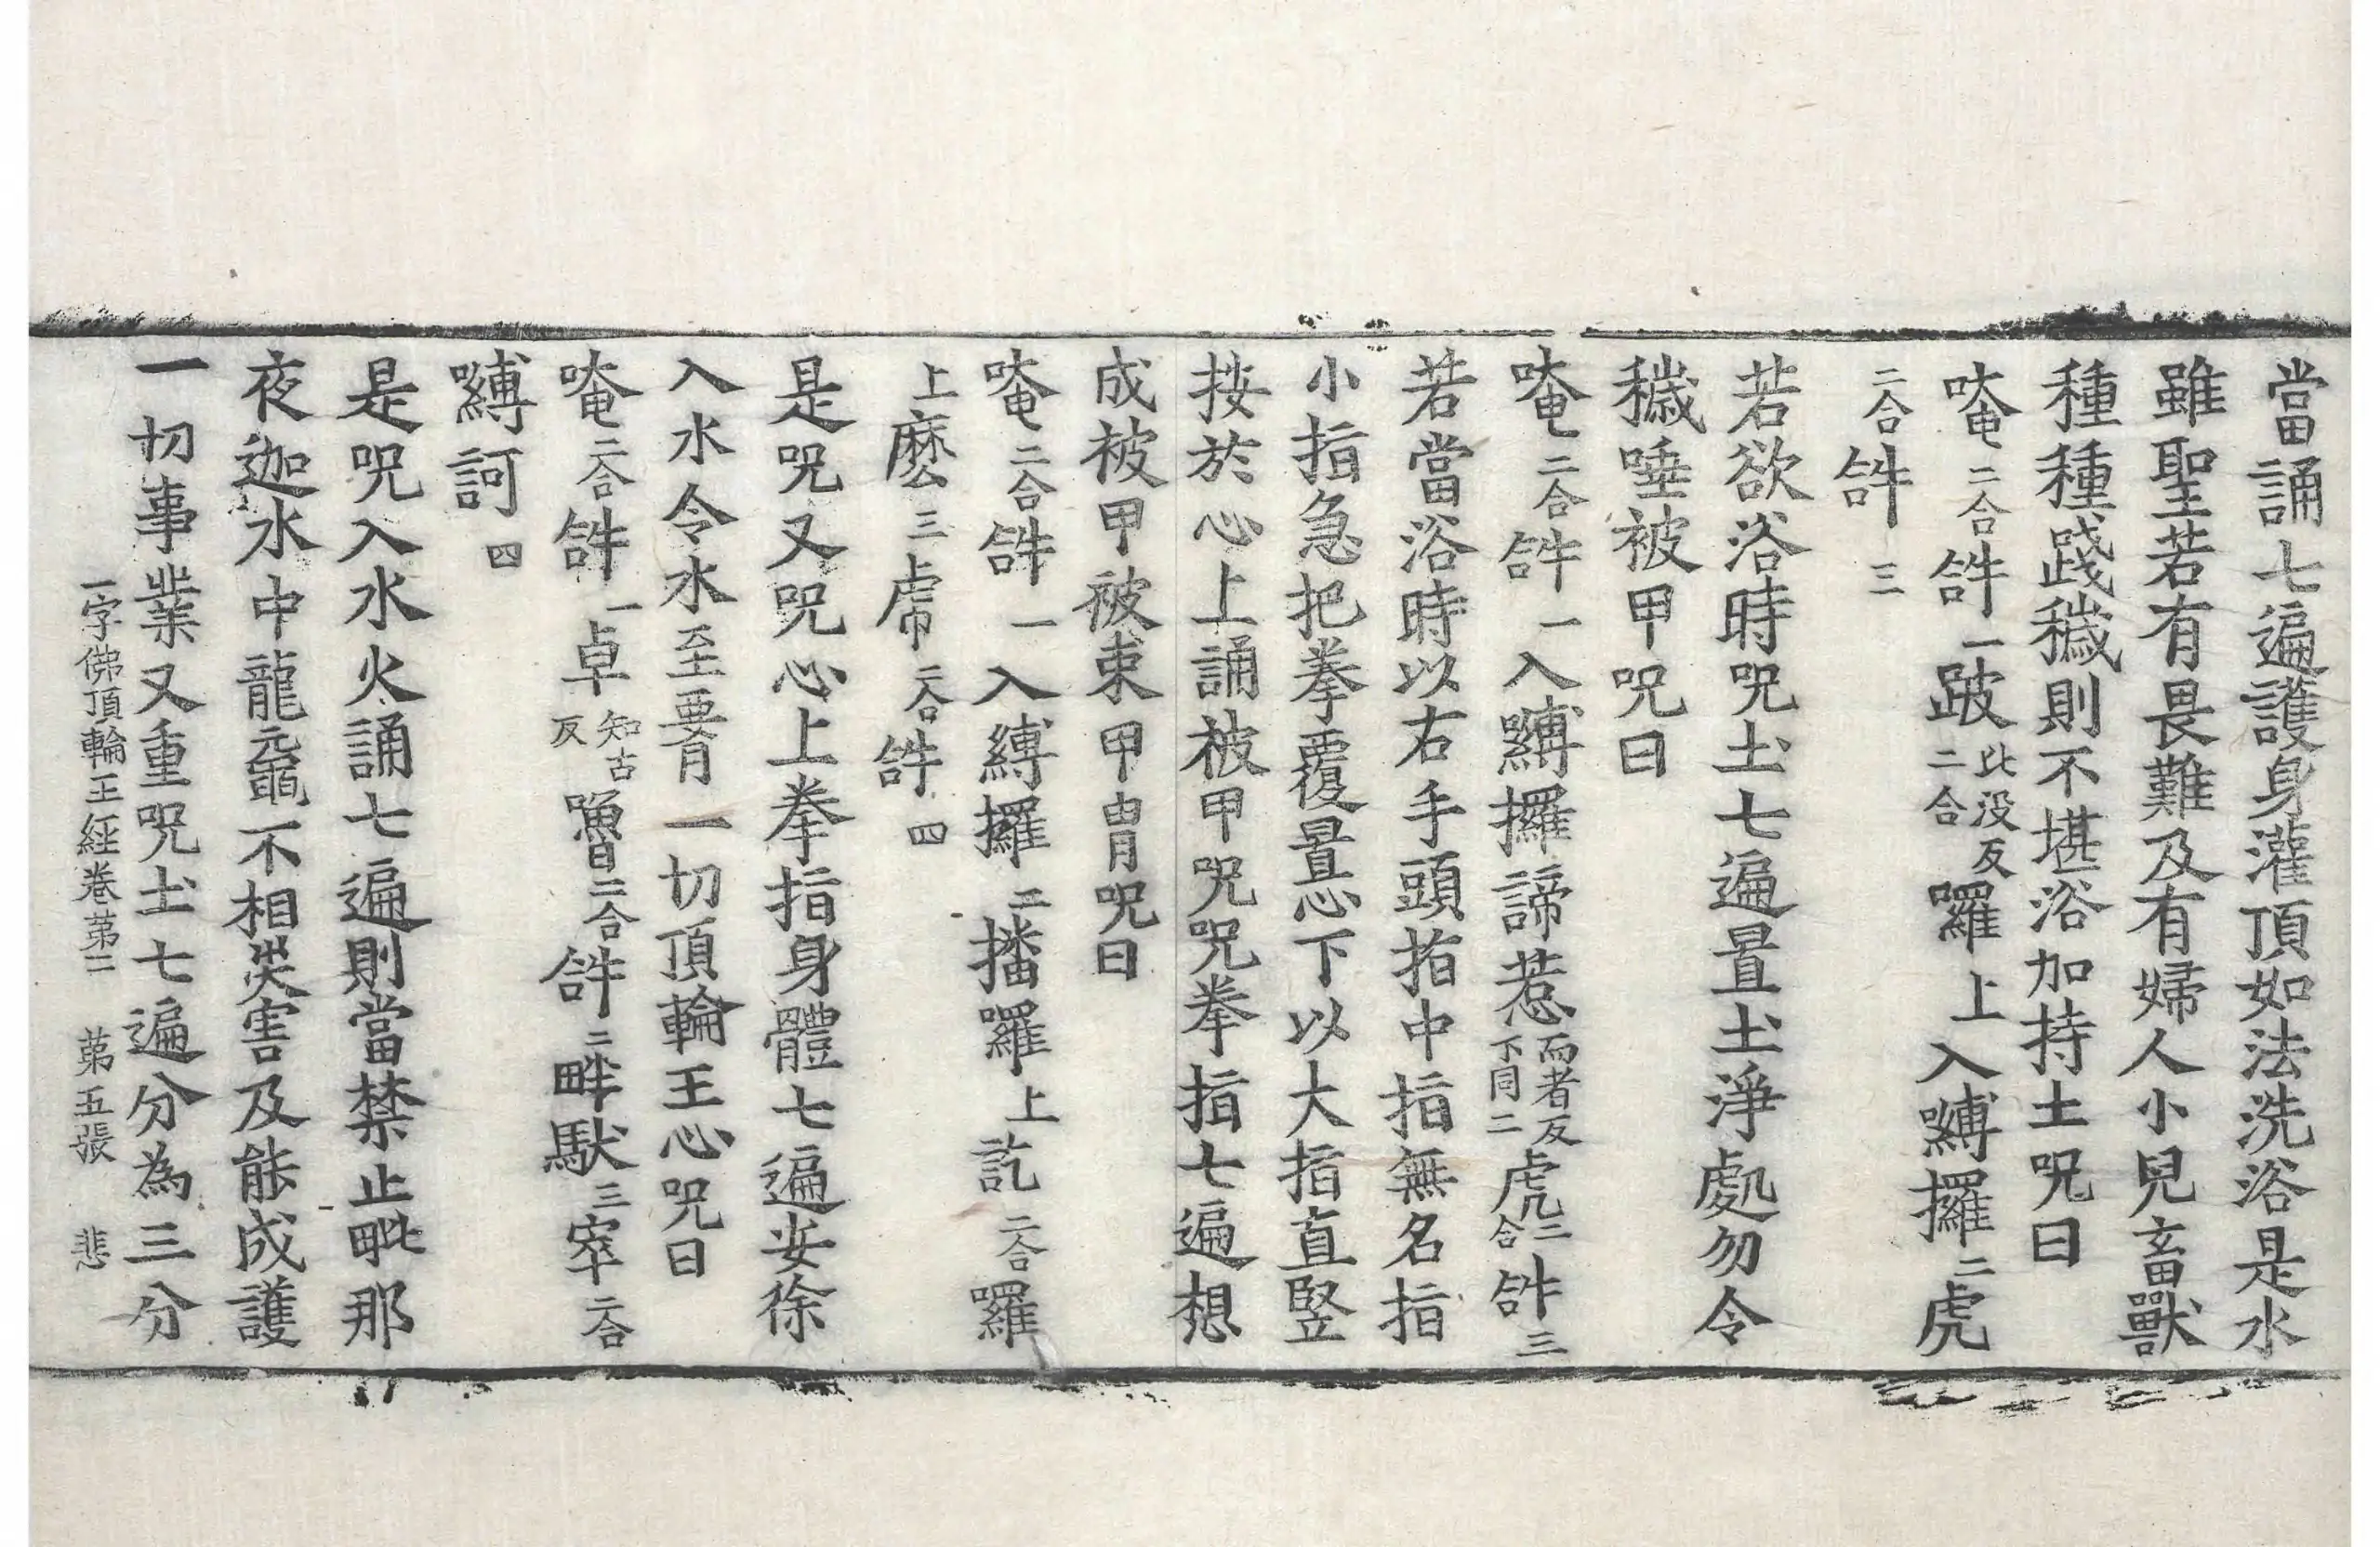 當誦七遍護身灌頂如法洗浴是水
雖聖若有畏難及有婦人小兒畜獸
種種踐穢則不堪浴加持土呪曰
唵二合𤙖一跛比没反二合囉上入嚩攞二虎
二合𤙖三
若欲浴時呪土七遍置土淨處勿令
穢唾被甲呪曰
唵二合𤙖一入嚩攞諦惹而者反下同二虎二合𤙖三
若當浴時以右手頭指中指無名指
小指急把拳覆置心下以大指直竪
按於心上誦被甲呪呪拳指七遍想
成被甲被束甲冑呪曰
唵二合𤙖一入嚩攞二播囉上訖二合囉
上麽三虏二合𤙖四
是呪又呪心上拳指身體七遍安徐
入水令水至𦝫一切頂輪王心呪曰
唵二合𤙖一卓知古反嚕二合𤙖二畔馱三窣二合
嚩訶四
是呪入水火誦七遍則當禁止毗那
夜迦水中龍黿不相災害及能成護
一切事業又重呪土七遍分為三分
一字佛頂輪王經卷第二　第五張　悲